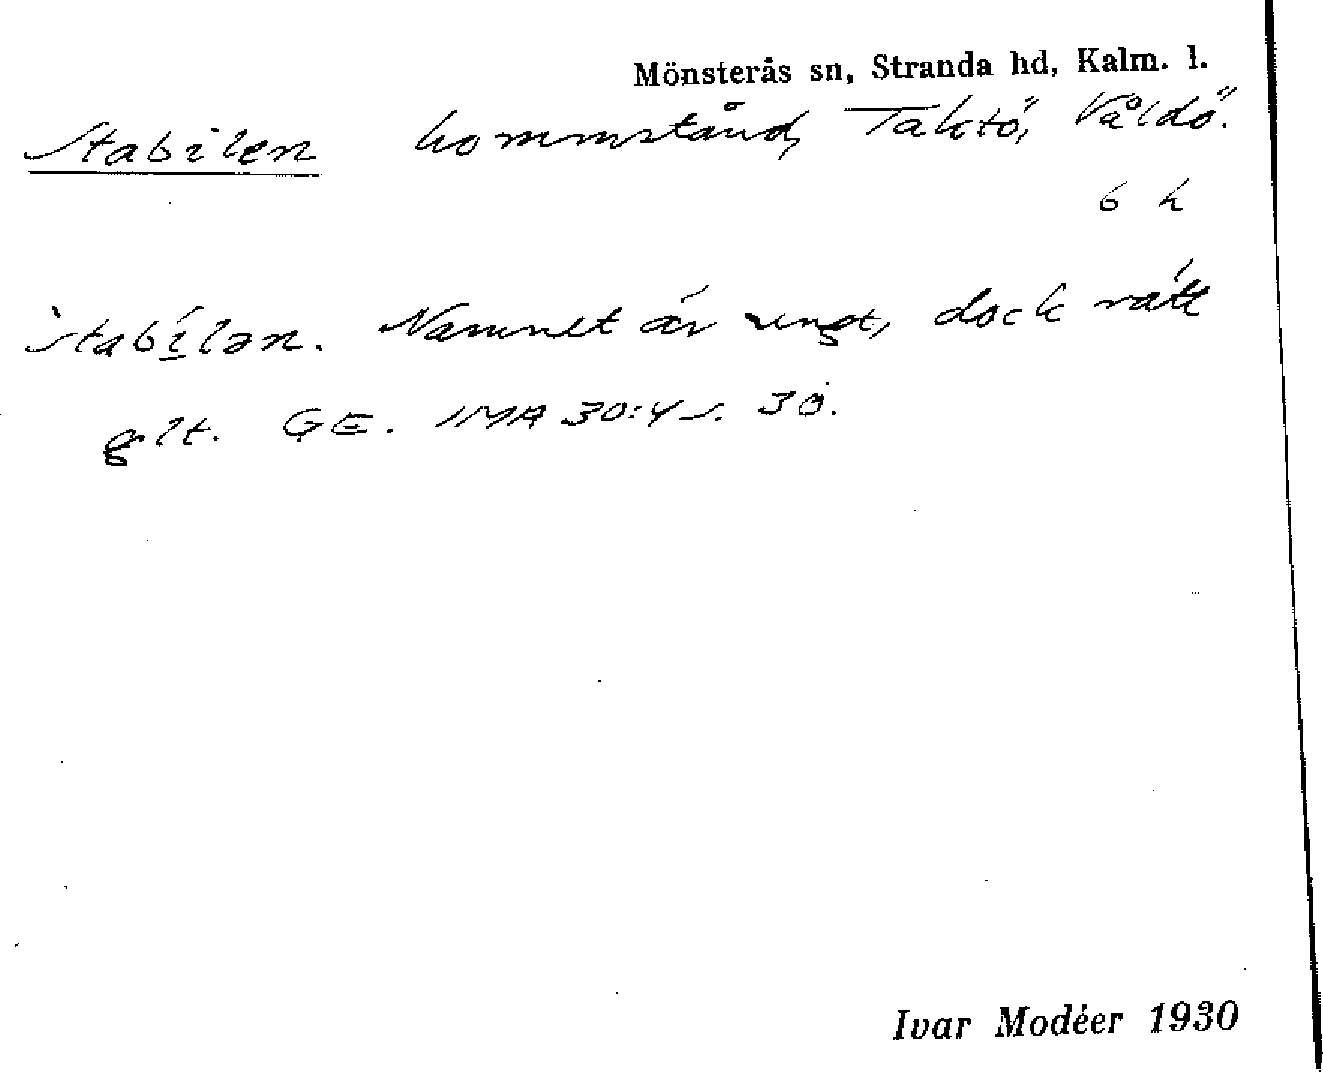 Mönsterås sn, Stranda hd, Kalm. l.
Stabilen hommstånd, Taktö, Våldö.
6 h
stabílən. Namnet är ungt, dock rätt
glt. GE. IMA 30:4 s. 30.
Ivar Modéer 1930